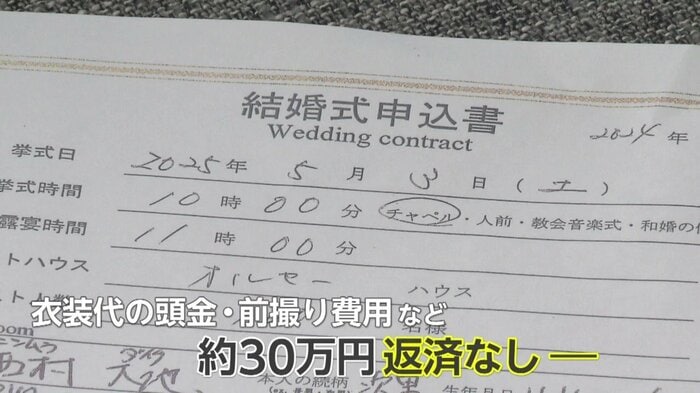 結婚式申込書
Wedding contract
2024 年
挙式日 2025年 5 月 3 日 ( 土 )
挙式時間 10 時 00 分 チャペル・人前・教会音楽式・和婚の
露宴時間 11 時 00 分
トハウス オルセー ハウス
衣装代の頭金・前撮り費用 など
名様
約30万円 返済なし ―
西村 大地 本人の続柄